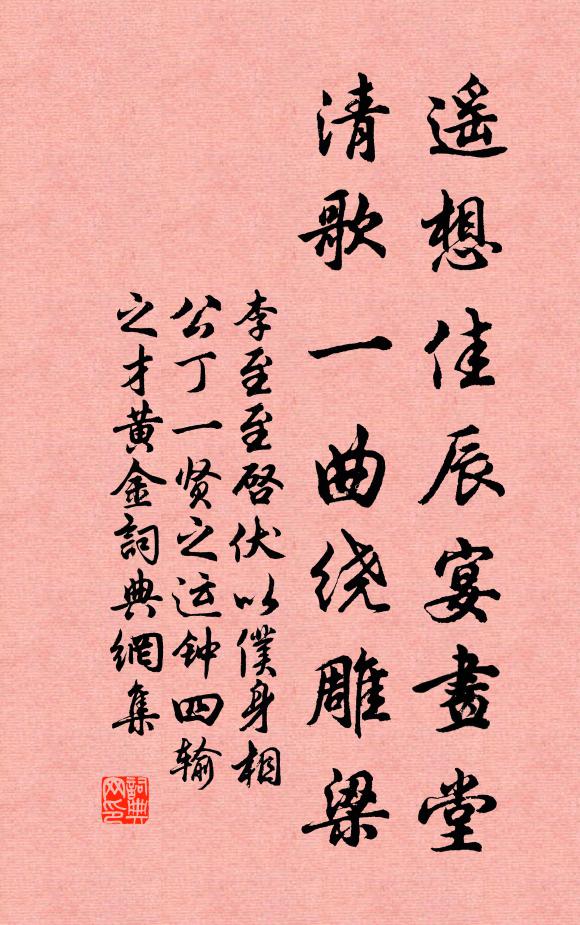 遥想佳辰宴畫堂
清歌一曲绕雕梁
李至至啓伏以僕身相
公丁一贤之运钟四输
之才黄金詞典網集
詞典网印